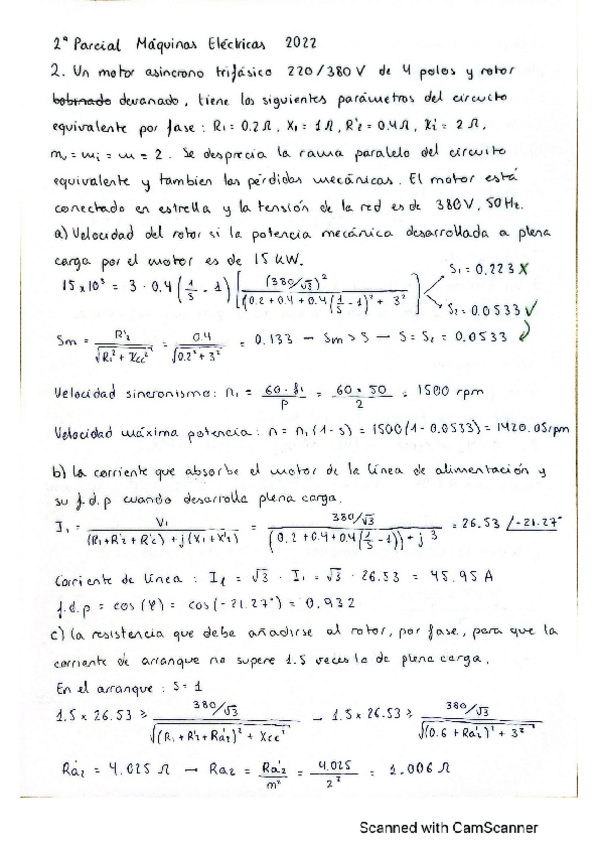 2ª Parcial Máquinas Eléctricas 2022
2. Un motor asincrono trifásico 220/380 V de 4 polos y rotor
bobinado devanado, tiene los siguientes parámetros del circuito
equivalente por fase: R1 = 0.2 Ω, X1 = 1 Ω, R'2 = 0.4 Ω, X'2 = 2 Ω,
mv = mi = m = 2. Se desprecia la rama paralelo del circuito
equivalente y tambien las pérdidas mecánicas. El motor está
conectado en estrella y la tensión de la red es de 380 V, 50 Hz.
a) Velocidad del rotor si la potencia mecánica desarrollada a plena
carga por el motor es de 15 kW.
15 x 10³ = 3 · 0.4 (1/s - 1) [(380/√3)² / ((0.2 + 0.4 + 0.4(1/s - 1))² + 3²)]
S1 = 0.223 X
S2 = 0.0533 ✓
Sm = R'2 / √(R1² + Xcc²) = 0.4 / √(0.2² + 3²) = 0.133 — Sm > S — S = S2 = 0.0533
Velocidad sincronismo: n1 = 60 · f1 / P = 60 · 50 / 2 = 1500 rpm
Velocidad máxima potencia: n = n1 (1 - s) = 1500 (1 - 0.0533) = 1420.05 rpm
b) la corriente que absorbe el motor de la línea de alimentación y
su f.d.p cuando desarrolla plena carga.
I1 = V1 / ((R1 + R'2 + R'c) + j(X1 + X'2)) = 380/√3 / ((0.2 + 0.4 + 0.4(1/s - 1)) + j 3) = 26.53 /-21.27°
Corriente de línea: Il = √3 · I1 = √3 · 26.53 = 45.95 A
f.d.p = cos (φ) = cos(-21.27°) = 0.932
c) la resistencia que debe añadirse al rotor, por fase, para que la
corriente de arranque no supere 1.5 veces la de plena carga.
En el arranque: S = 1
1.5 x 26.53 ≥ 380/√3 / √((R1 + R'2 + Ra'2)² + Xcc²) → 1.5 x 26.53 ≥ 380/√3 / √((0.6 + Ra'2)² + 3²)
Ra'2 = 4.025 Ω → Ra2 = Ra'2 / m² = 4.025 / 2² = 1.006 Ω
Scanned with CamScanner